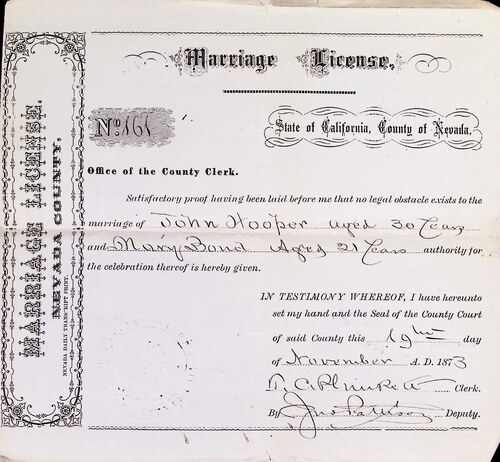 Marriage License.
MARRIAGE LICENSE.
NEVADA COUNTY.
NEVADA DAILY TRANSCRIPT PRINT.
No. 161
State of California, County of Nevada.
Office of the County Clerk.
Satisfactory proof having been laid before me that no legal obstacle exists to the
marriage of John Hooper aged 30 Years
and Mary Bond Aged 21 Years authority for
the celebration thereof is hereby given.
IN TESTIMONY WHEREOF, I have hereunto
set my hand and the Seal of the County Court
of said County this 19th day
of November A. D. 1873
T. C. Plunkett Clerk.
By Jno Pattison Deputy.